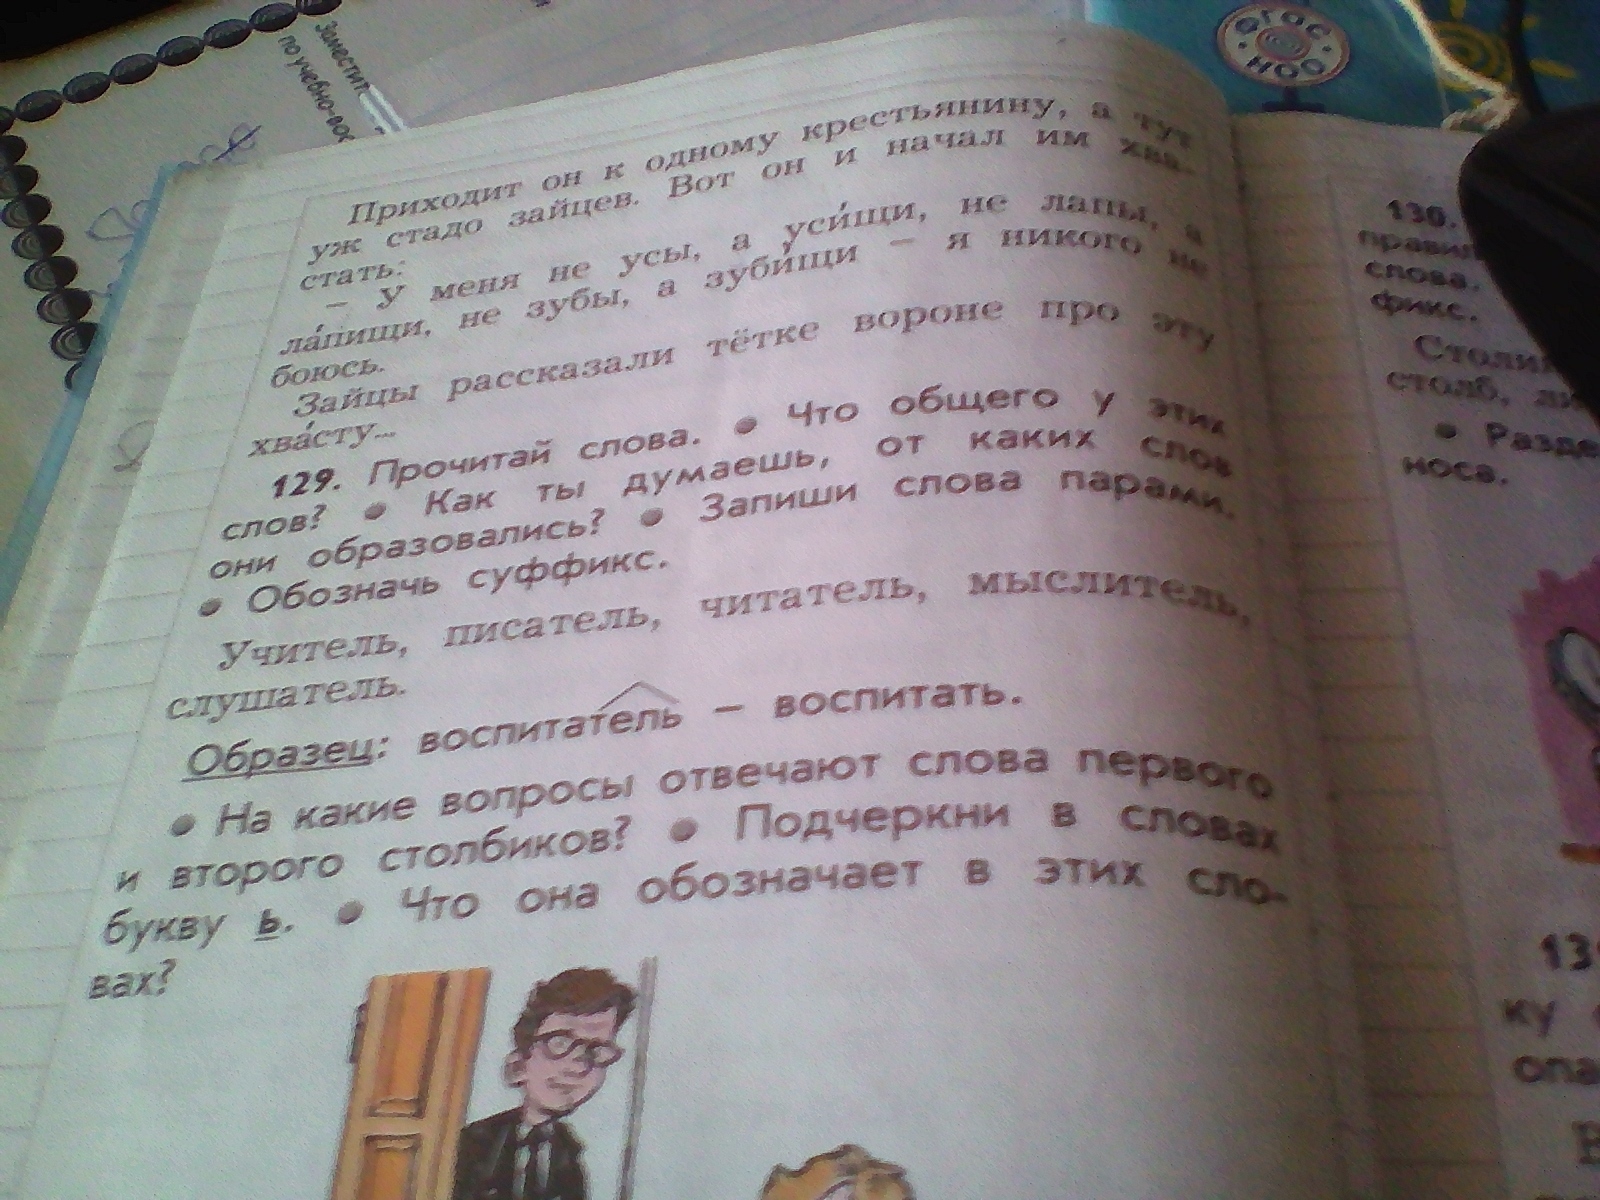 Заместит.
по учебно-вос
ФГОС
НОО
Приходит он к одному крестьянину, а тут
уж стадо зайцев. Вот он и начал им хва-
стать:
– У меня не усы, а уси́щи, не лапы, а
ла́пищи, не зубы, а зуби́щи – я никого не
боюсь.
Зайцы рассказали тётке вороне про эту
хва́сту...
129. Прочитай слова. ● Что общего у этих
слов? ● Как ты думаешь, от каких слов
они образовались? ● Запиши слова парами.
● Обозначь суффикс.
Учитель, писатель, читатель, мыслитель,
слушатель.
Образец: воспитатель – воспитать.
● На какие вопросы отвечают слова первого
и второго столбиков? ● Подчеркни в словах
букву ь. ● Что она обозначает в этих сло-
вах?
130.
правил
слова.
фикс.
столб,
● Разде
носа.
13
ку
опа